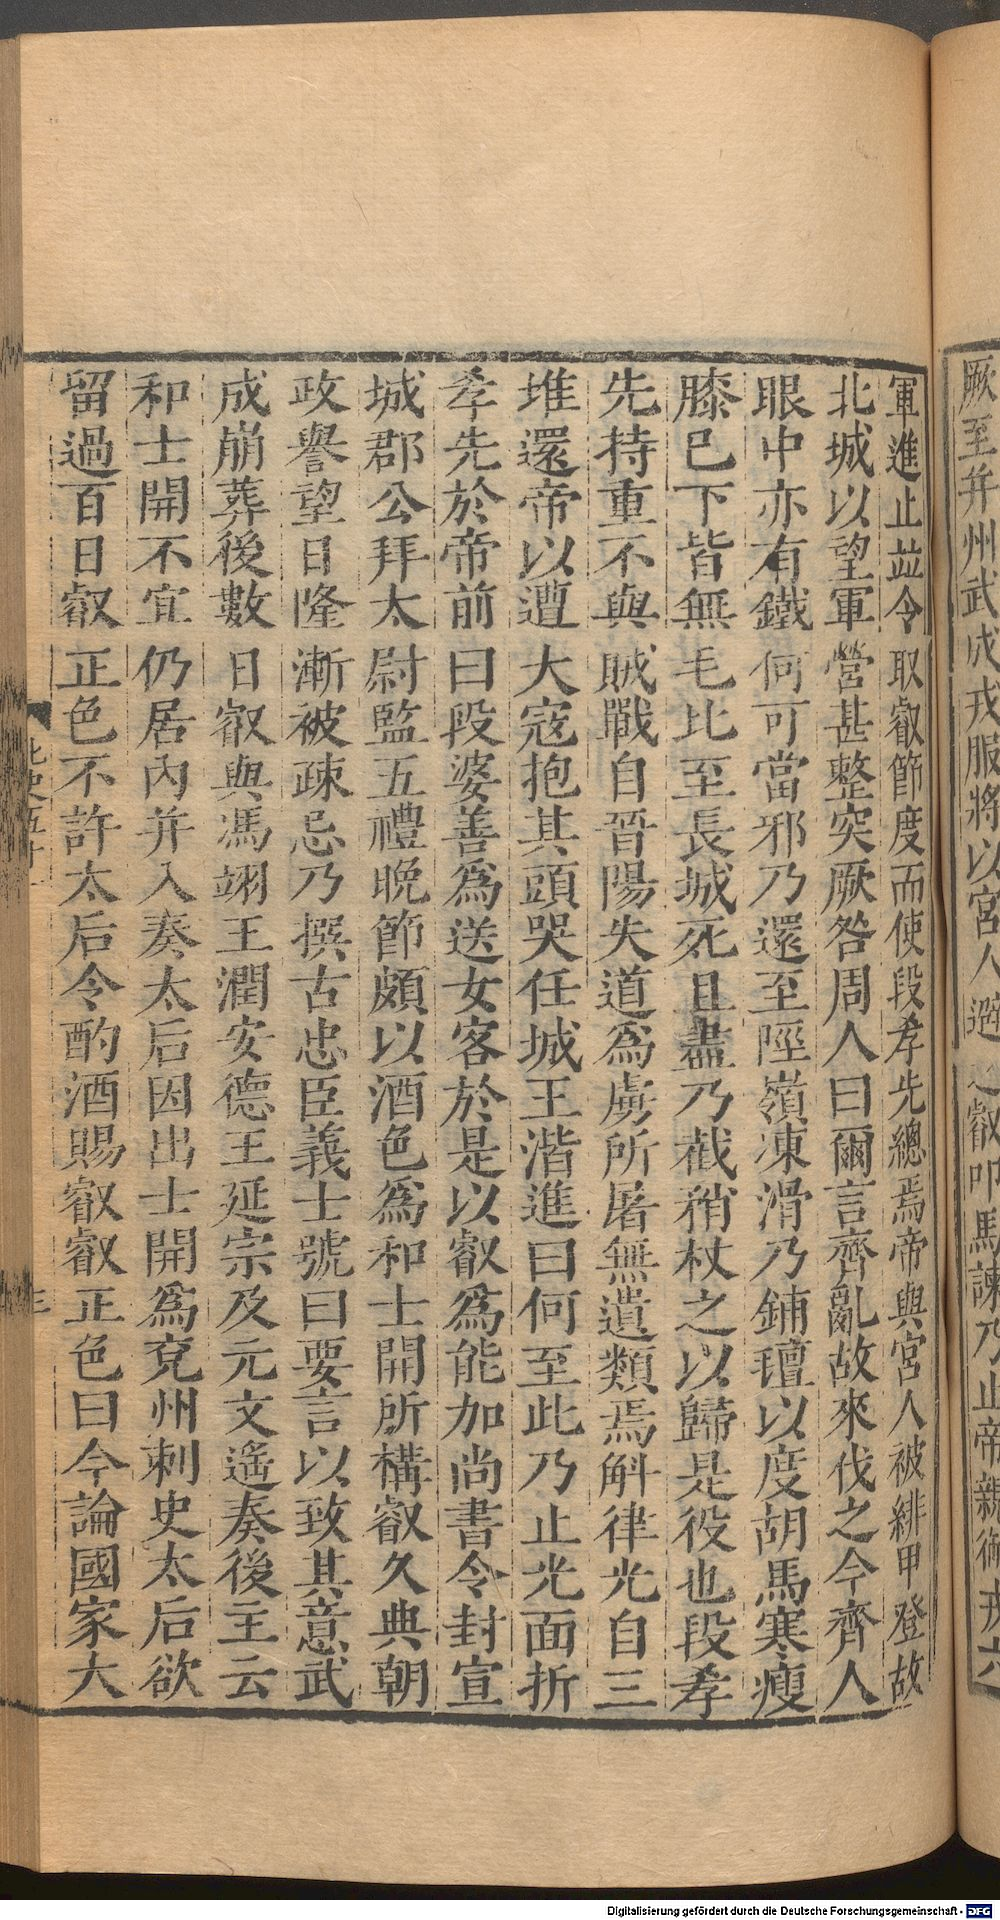 厥至并州武成戎服將以宮人避之叡叩馬諫乃止帝親御戎六
軍進止並令取叡節度而使段孝先總焉帝與宮人被緋甲登故
北城以望軍營甚整突厥咎周人曰爾言齊亂故來伐之今齊人
眼中亦有鐵何可當邪乃還至陘嶺凍滑乃鋪氊以度胡馬寒瘦
膝已下皆無毛比至長城死且盡乃截矟杖之以歸是役也段孝
先持重不與賊戰自晉陽失道為虜所屠無遺類焉斛律光自三
堆還帝以遭大寇抱其頭哭任城王湝進曰何至此乃止光面折
孝先於帝前曰段婆善為送女客於是以叡為能加尚書令封宣
城郡公拜太尉監五禮晚節頗以酒色為和士開所構叡久典朝
政譽望日隆漸被疎忌乃撰古忠臣義士號曰要言以致其意武
成崩葬後數日叡與馮翊王潤安德王延宗及元文遙奏後主云
和士開不宜仍居內并入奏太后因出士開為兗州刺史太后欲
留過百日叡正色不許太后令酌酒賜叡叡正色曰今論國家大
北史五十一
三
Digitalisierung gefördert durch die Deutsche Forschungsgemeinschaft - DFG